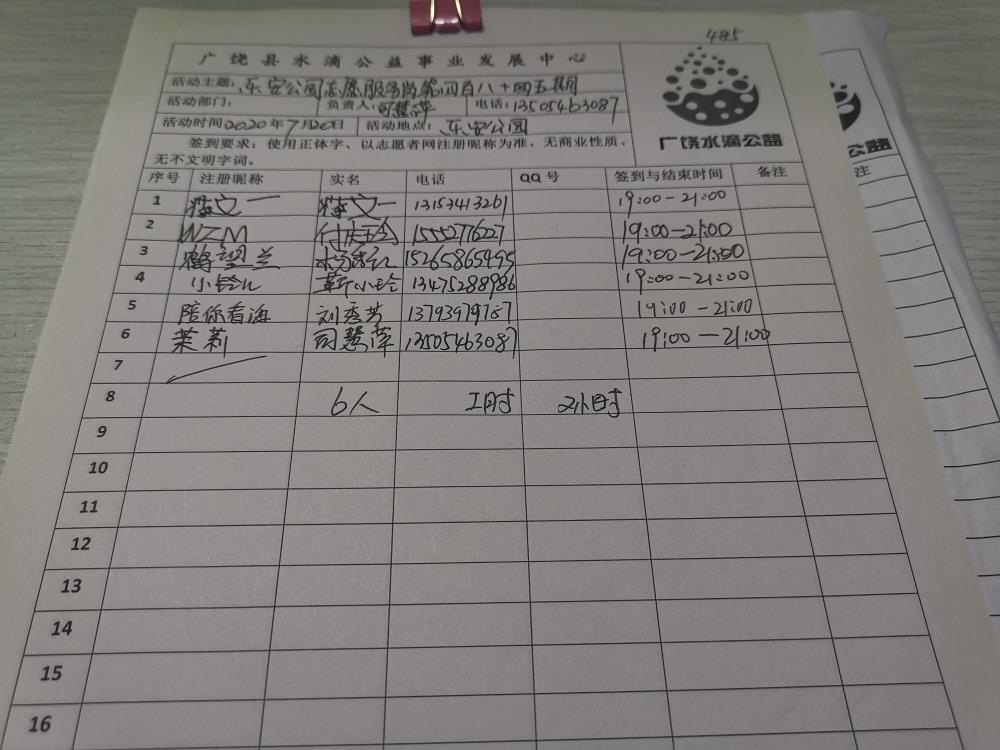 485
广饶县水滴公益事业发展中心
活动主题：乐安公园志愿服务岗第四百八十四五期
活动部门： 负责人：司慧萍 电话：13505463087
活动时间2020年7月20日 活动地点：乐安公园
签到要求：使用正体字、以志愿者网注册昵称为准、无商业性质、
无不文明字词。
广饶水滴公益
序号 注册昵称 实名 电话 QQ号 签到与结束时间 备注
1 13153413261 19:00-21:00
2 WZM 15552776227 19:00-21:00
3 鹤望兰 15265865495 19:00-21:00
4 小铃儿 靳小玲 13475288986 19:00-21:00
5 陪你看海 刘秀芳 13793979787 19:00-21:00
6 茉莉 司慧萍 13505463087 19:00-21:00
7
8 6人 工时 2小时
9
10
11
12
13
14
15
16
公益
注